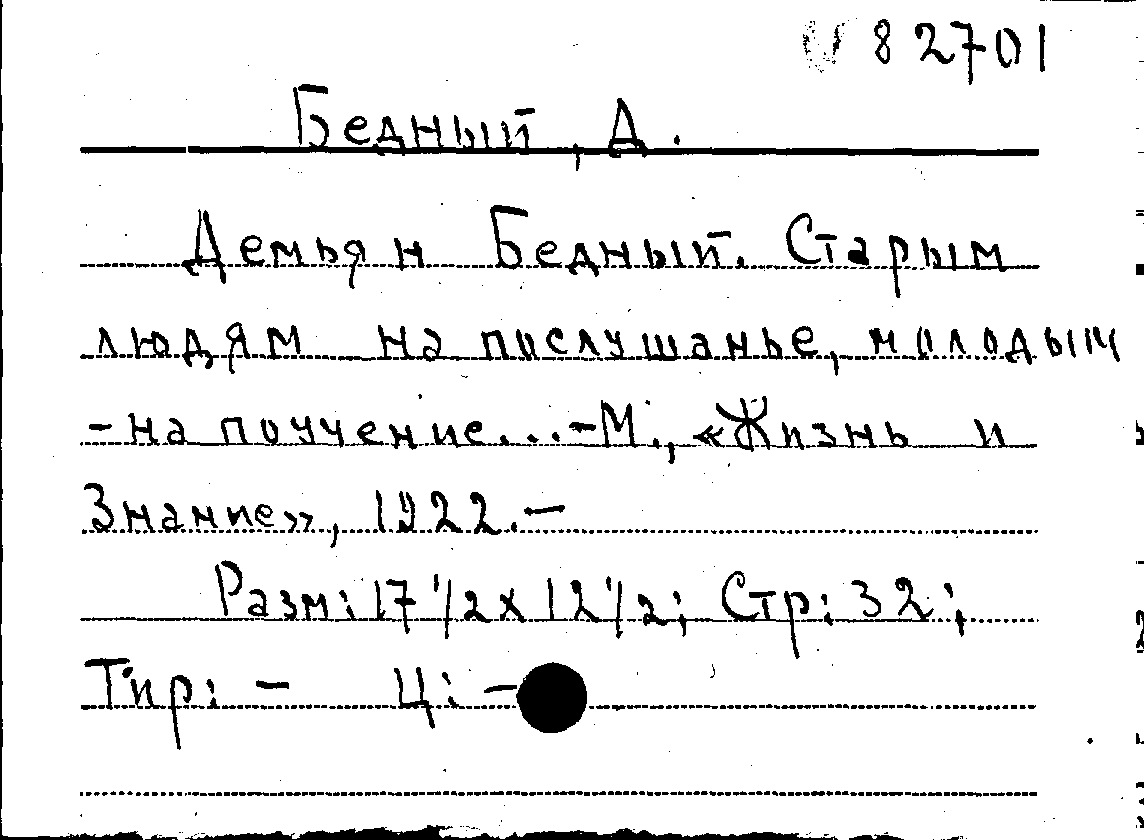 82701
Бедный, Д.
Демьян Бедный. Старым
людям на послушанье, молодым
- на поучение...-М., «Жизнь и
Знание», 1922.-
Разм: 17 1/2 x 12 1/2; Стр: 32;
Тир: - Ц: -